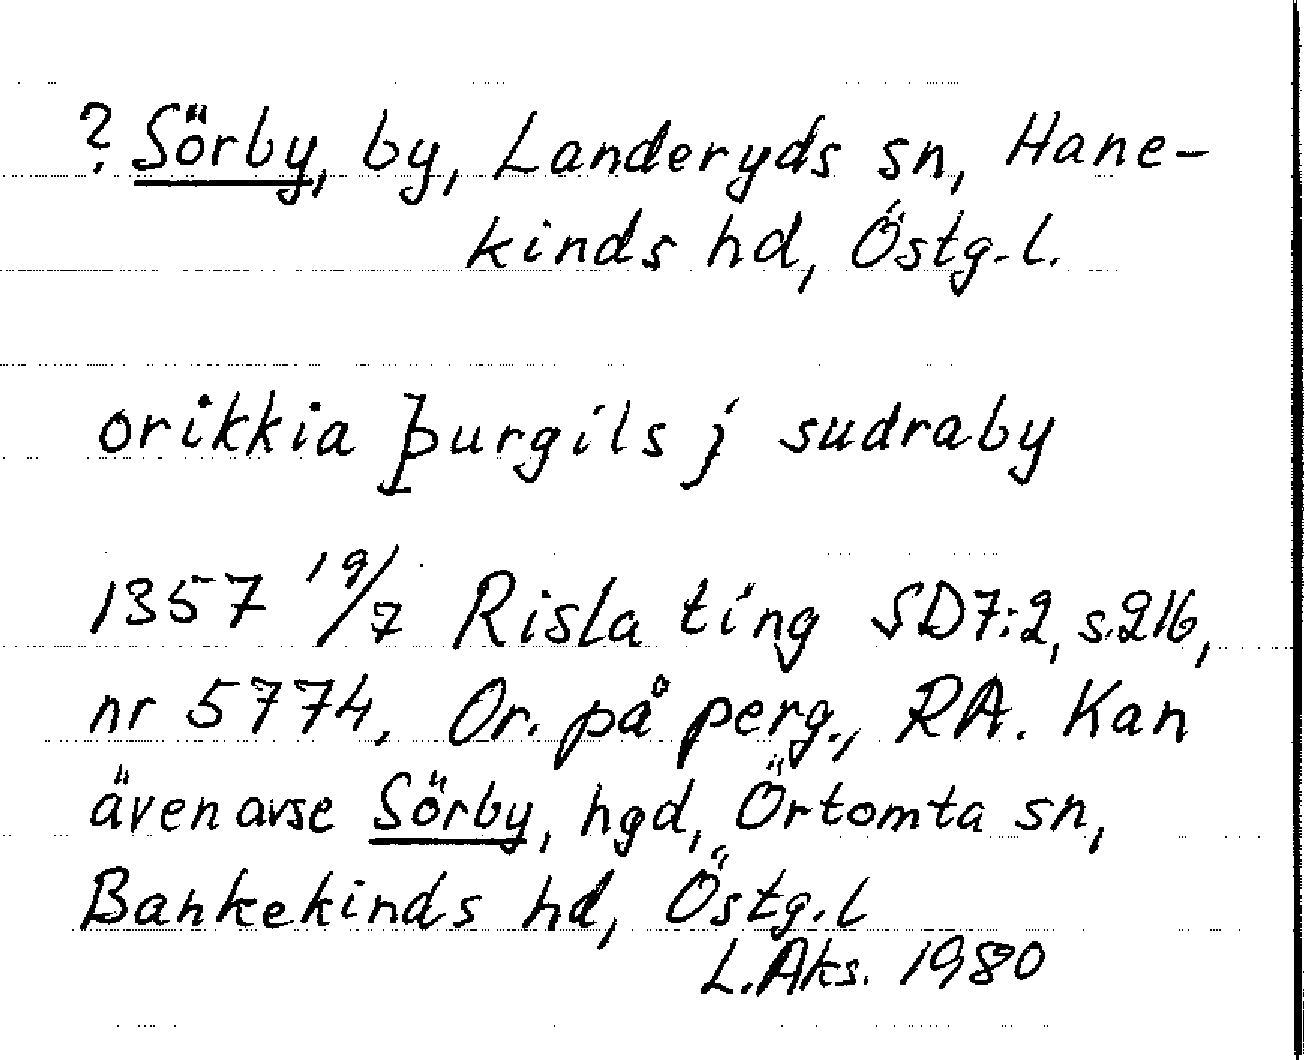 ? Sörby, by, Landeryds sn, Hane-
kinds hd, Östg.l.
orikkia þurgils j sudraby
1357 19/7 Risla ting SD7:2, s.216,
nr 5774. Or. på perg., RA. Kan
även avse Sörby, hgd, Örtomta sn,
Bankekinds hd, Östg.l
L.Aks. 1980